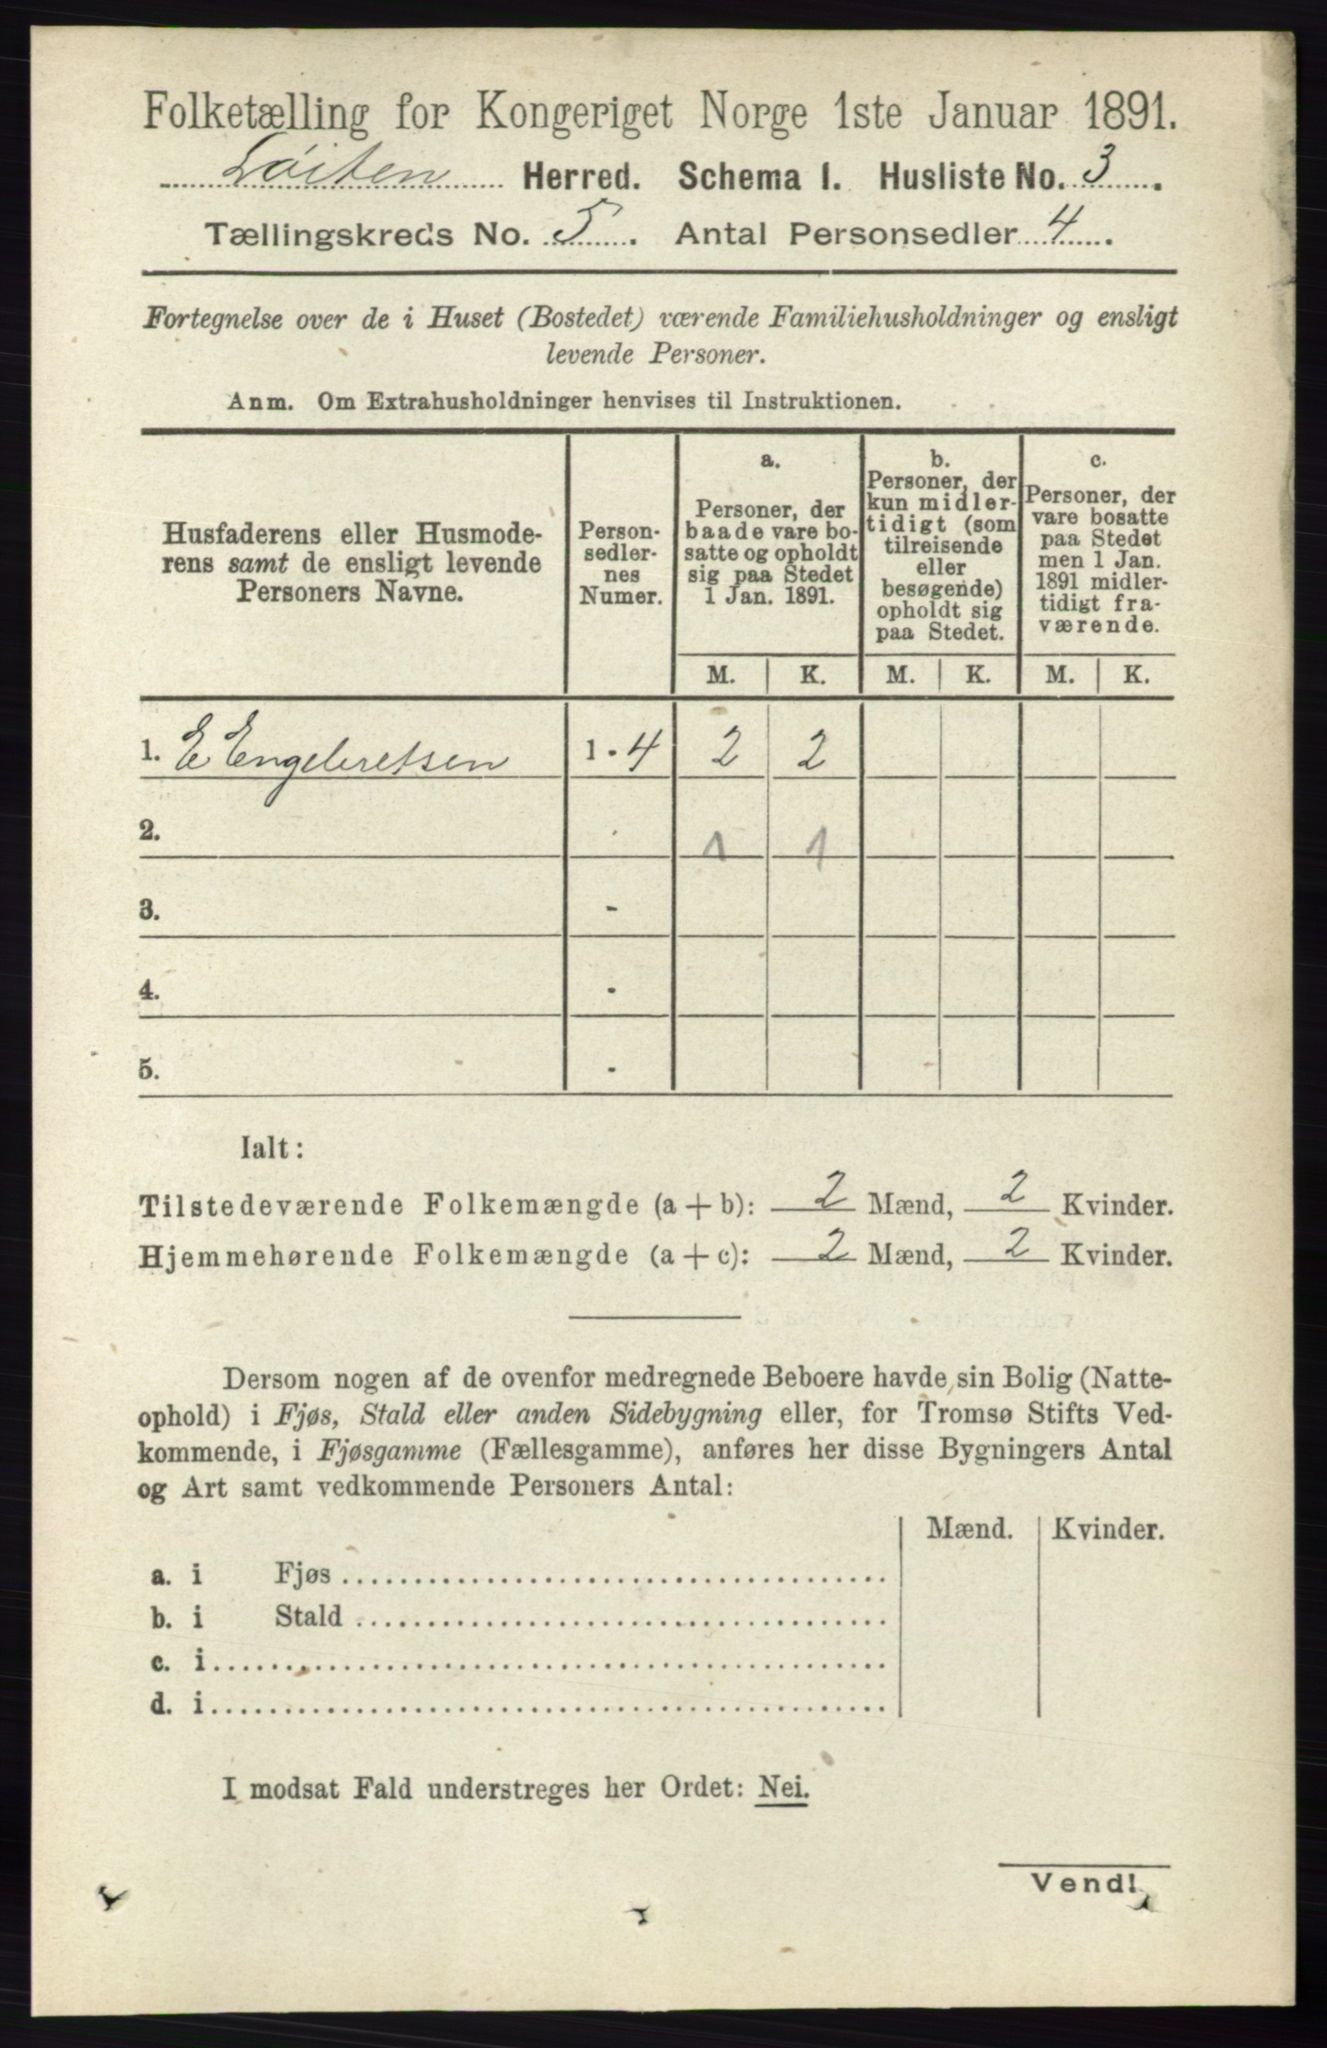 Folketælling for Kongeriget Norge 1ste Januar 1891.
Löiten Herred. Schema I. Husliste No. 3.
Tællingskreds No. 5. Antal Personsedler 4.
Fortegnelse over de i Huset (Bostedet) værende Familiehusholdninger og ensligt
levende Personer.
Anm. Om Extrahusholdninger henvises til Instruktionen.
Husfaderens eller Husmode-
rens samt de ensligt levende
Personers Navne.
Person-
sedler-
nes
Numer.
a.
Personer, der
baade vare bo-
satte og opholdt
sig paa Stedet
1 Jan. 1891.
b.
Personer, der
kun midler-
tidigt (som
tilreisende
eller
besøgende)
opholdt sig
paa Stedet.
c.
Personer, der
vare bosatte
paa Stedet
men 1 Jan.
1891 midler-
tidigt fra-
værende.
M. K. M. K. M. K.
1. E Engebretsen 1 - 4 2 2
2. 1 1
3. -
4. -
5. -
Ialt:
Tilstedeværende Folkemængde (a + b): 2 Mænd, 2 Kvinder.
Hjemmehørende Folkemængde (a + c): 2 Mænd, 2 Kvinder.
Dersom nogen af de ovenfor medregnede Beboere havde sin Bolig (Natte-
ophold) i Fjøs, Stald eller anden Sidebygning eller, for Tromsø Stifts Ved-
kommende, i Fjøsgamme (Fællesgamme), anføres her disse Bygningers Antal
og Art samt vedkommende Personers Antal:
Mænd. Kvinder.
a. i Fjøs
b. i Stald
c. i
d. i
I modsat Fald understreges her Ordet: Nei.
Vend!